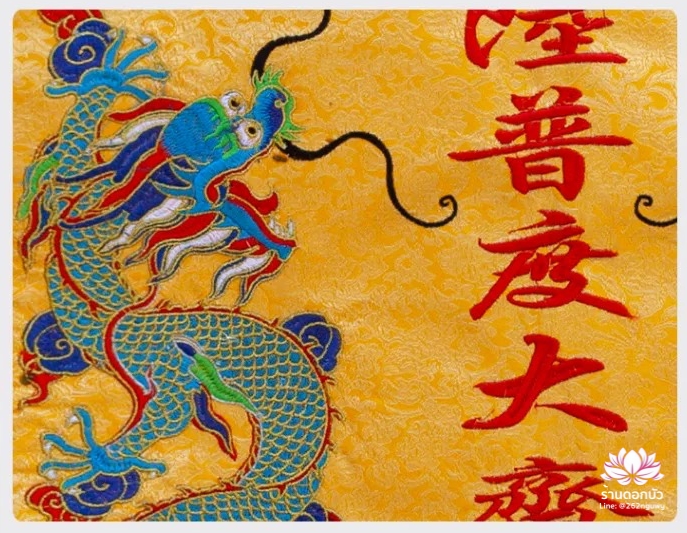 陸普度大齋
ร้านดอกบัว
Line: @262nguwy